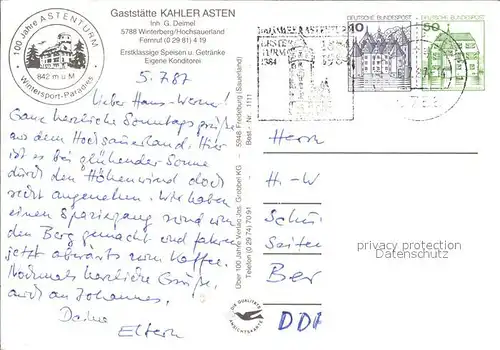 100 Jahre ASTENTURM
842 m ü M
Wintersport-Paradies
Gaststätte KAHLER ASTEN
Inh. G. Deimel
5788 Winterberg/Hochsauerland
Fernruf (0 29 81) 4 19
Erstklassige Speisen u. Getränke
Eigene Konditorei
5.7.87
Lieber Hans-Werner!
Ganz herzliche Sonntagsgrüße
aus dem Hochsauerland. Hier
ist es bei glühender Sonne
durch den Höhenwind doch
recht angenehm. Wir haben
einen Spaziergang rund um
den Berg gemacht und fahren
jetzt abwärts zum Kaffee.
Nochmals herzliche Grüße,
auch an Johannes.
Deine
Eltern
Über 100 Jahre Verlag Jos. Grobbel KG - 5948 Fredeburg (Sauerland)
Telefon (0 29 74) 70 91 Best.-Nr. 1111
100 JAHRE ASTENTURM
1884
1984
10
DEUTSCHE BUNDESPOST
50
DEUTSCHE BUNDESPOST
Herrn
H.-W
Schü
Seiten
Ber
DDR
privacy protection
Datenschutz
DIE QUALITÄTS
ANSICHTSKARTE